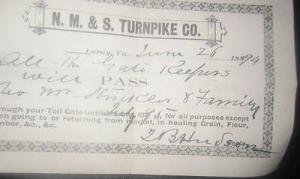 N. M. & S. TURNPIKE CO.
June 26 1899
All the Gate Keepers
will PASS
& Family
rough your Toll Gate until for all purposes except
en going to or returning from market, in hauling Grain, Flour,
mber, &c., &c.